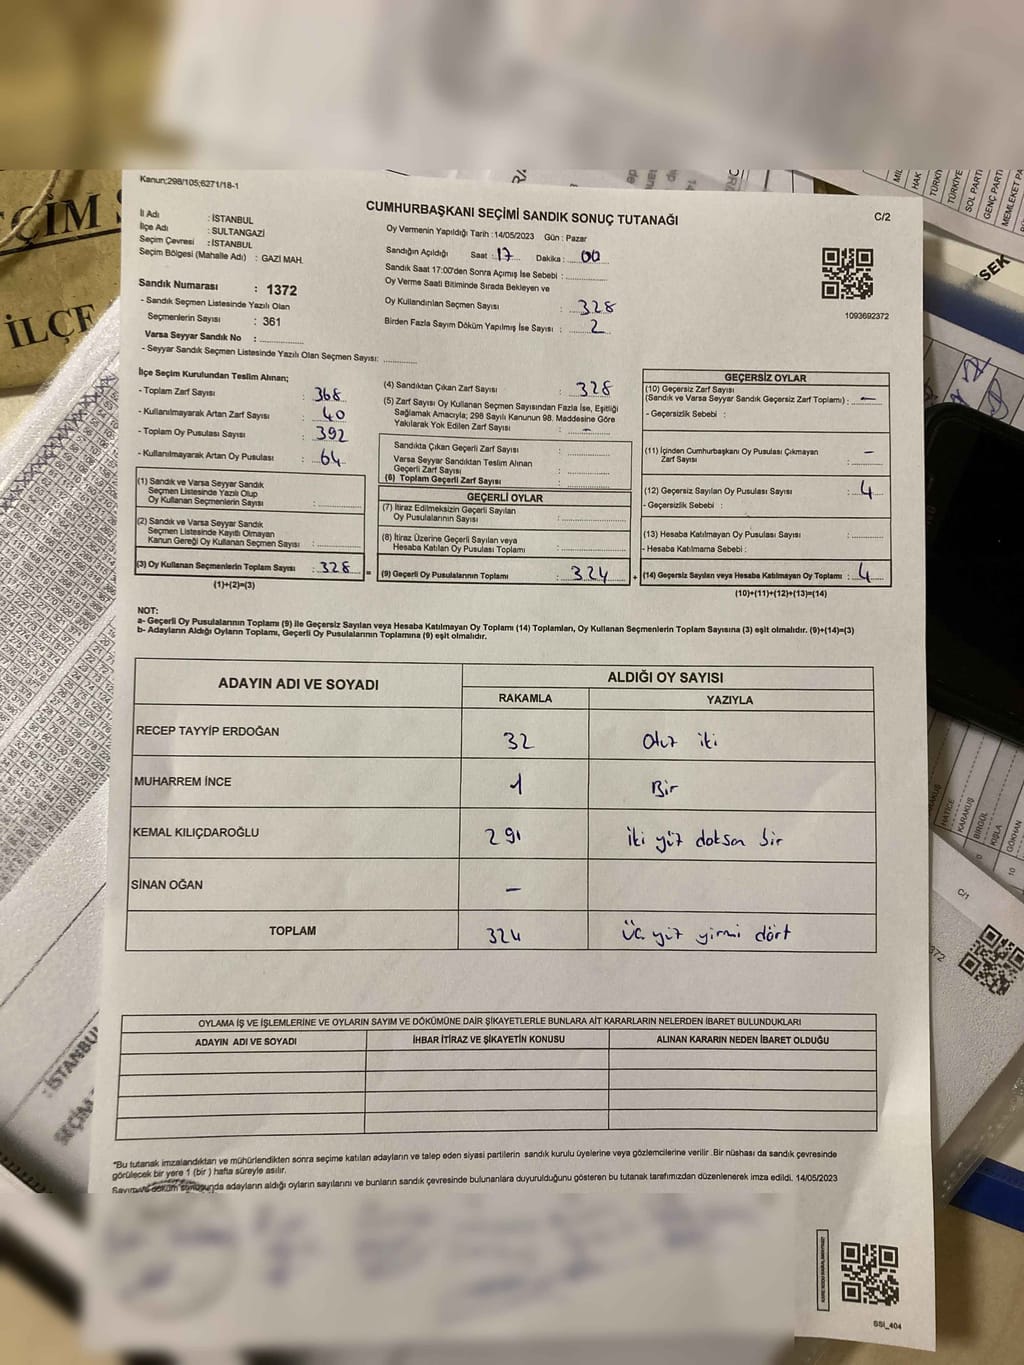 Kanun;298/105;6271/18-1
CUMHURBAŞKANI SEÇİMİ SANDIK SONUÇ TUTANAĞI
C/2
İl Adı : İSTANBUL
İlçe Adı : SULTANGAZİ
Seçim Çevresi : İSTANBUL
Seçim Bölgesi (Mahalle Adı) : GAZİ MAH.
Sandık Numarası : 1372
- Sandık Seçmen Listesinde Yazılı Olan
Seçmenlerin Sayısı : 361
Varsa Seyyar Sandık No :
- Seyyar Sandık Seçmen Listesinde Yazılı Olan Seçmen Sayısı:
Oy Vermenin Yapıldığı Tarih : 14/05/2023 Gün : Pazar
Sandığın Açıldığı Saat : 17 Dakika : 00
Sandık Saat 17:00'den Sonra Açımış İse Sebebi :
Oy Verme Saati Bitiminde Sırada Bekleyen ve
Oy Kullandırılan Seçmen Sayısı : 328
Birden Fazla Sayım Döküm Yapılmış İse Sayısı : 2
1093692372
İlçe Seçim Kurulundan Teslim Alınan;
- Toplam Zarf Sayısı : 368
- Kullanılmayarak Artan Zarf Sayısı : 40
- Toplam Oy Pusulası Sayısı : 392
- Kullanılmayarak Artan Oy Pusulası : 64
(1) Sandık ve Varsa Seyyar Sandık
Seçmen Listesinde Yazılı Olup
Oy Kullanan Seçmenlerin Sayısı :
(2) Sandık ve Varsa Seyyar Sandık
Seçmen Listesinde Kayıtlı Olmayan
Kanun Gereği Oy Kullanan Seçmen Sayısı :
(3) Oy Kullanan Seçmenlerin Toplam Sayısı : 328
(1)+(2)=(3)
(4) Sandıktan Çıkan Zarf Sayısı : 328
(5) Zarf Sayısı Oy Kullanan Seçmen Sayısından Fazla İse, Eşitliği
Sağlamak Amacıyla; 298 Sayılı Kanunun 98. Maddesine Göre
Yakılarak Yok Edilen Zarf Sayısı : -
Sandıkta Çıkan Geçerli Zarf Sayısı :
Varsa Seyyar Sandıktan Teslim Alınan
Geçerli Zarf Sayısı :
(6) Toplam Geçerli Zarf Sayısı :
GEÇERLİ OYLAR
(7) İtiraz Edilmeksizin Geçerli Sayılan
Oy Pusulalarının Sayısı :
(8) İtiraz Üzerine Geçerli Sayılan veya
Hesaba Katılan Oy Pusulası Toplamı :
= (9) Geçerli Oy Pusulalarının Toplamı : 324
GEÇERSİZ OYLAR
(10) Geçersiz Zarf Sayısı
(Sandık ve Varsa Seyyar Sandık Geçersiz Zarf Toplamı) : -
- Geçersizlik Sebebi :
(11) İçinden Cumhurbaşkanı Oy Pusulası Çıkmayan
Zarf Sayısı : -
(12) Geçersiz Sayılan Oy Pusulası Sayısı : 4
- Geçersizlik Sebebi :
(13) Hesaba Katılmayan Oy Pusulası Sayısı :
- Hesaba Katılmama Sebebi :
+ (14) Geçersiz Sayılan veya Hesaba Katılmayan Oy Toplamı : 4
(10)+(11)+(12)+(13)=(14)
NOT:
a- Geçerli Oy Pusulalarının Toplamı (9) ile Geçersiz Sayılan veya Hesaba Katılmayan Oy Toplamı (14) Toplamları, Oy Kullanan Seçmenlerin Toplam Sayısına (3) eşit olmalıdır. (9)+(14)=(3)
b- Adayların Aldığı Oyların Toplamı, Geçerli Oy Pusulalarının Toplamına (9) eşit olmalıdır.
ADAYIN ADI VE SOYADI ALDIĞI OY SAYISI
RAKAMLA YAZIYLA
RECEP TAYYİP ERDOĞAN 32 Otuz iki
MUHARREM İNCE 1 Bir
KEMAL KILIÇDAROĞLU 291 iki yüz doksan bir
SİNAN OĞAN -
TOPLAM 324 Üç yüz yirmi dört
OYLAMA İŞ VE İŞLEMLERİNE VE OYLARIN SAYIM VE DÖKÜMÜNE DAİR ŞİKAYETLERLE BUNLARA AİT KARARLARIN NELERDEN İBARET BULUNDUKLARI
ADAYIN ADI VE SOYADI İHBAR İTİRAZ VE ŞİKAYETİN KONUSU ALINAN KARARIN NEDEN İBARET OLDUĞU
*Bu tutanak imzalandıktan ve mühürlendikten sonra seçime katılan adayların ve talep eden siyasi partilerin sandık kurulu üyelerine veya gözlemcilerine verilir .Bir nüshası da sandık çevresinde
görülecek bir yere 1 (bir ) hafta süreyle asılır.
adayların aldığı oyların sayılarını ve bunların sandık çevresinde bulunanlara duyurulduğunu gösteren bu tutanak tarafımızdan düzenlenerek imza edildi. 14/05/2023
SSI_404
İLÇE
HAK
SOL PARTİ
GENÇ PARTİ
HATİCE
KARAKUŞ
BİRGÜL
KIŞLA
GÖKHAN
C/1
: İSTANBUL